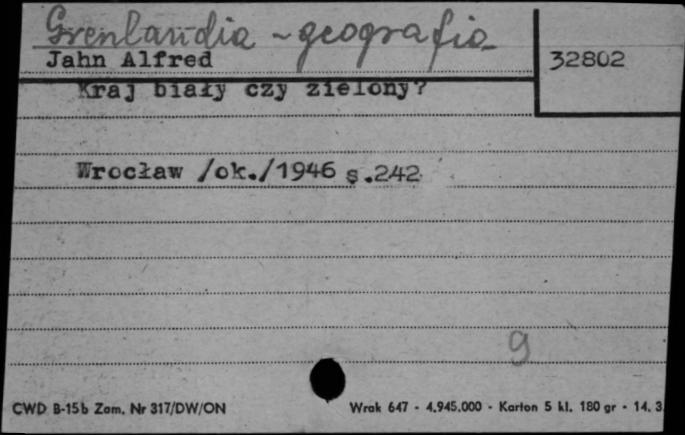 Grenlandia - geografia
Jahn Alfred
32802
Kraj biały czy zielony?
Wrocław /ok./1946 s.242
9
CWD B-15b Zam. Nr 317/DW/ON
Wrak 647 - 4.945.000 - Karton 5 kl. 180 gr - 14. 3